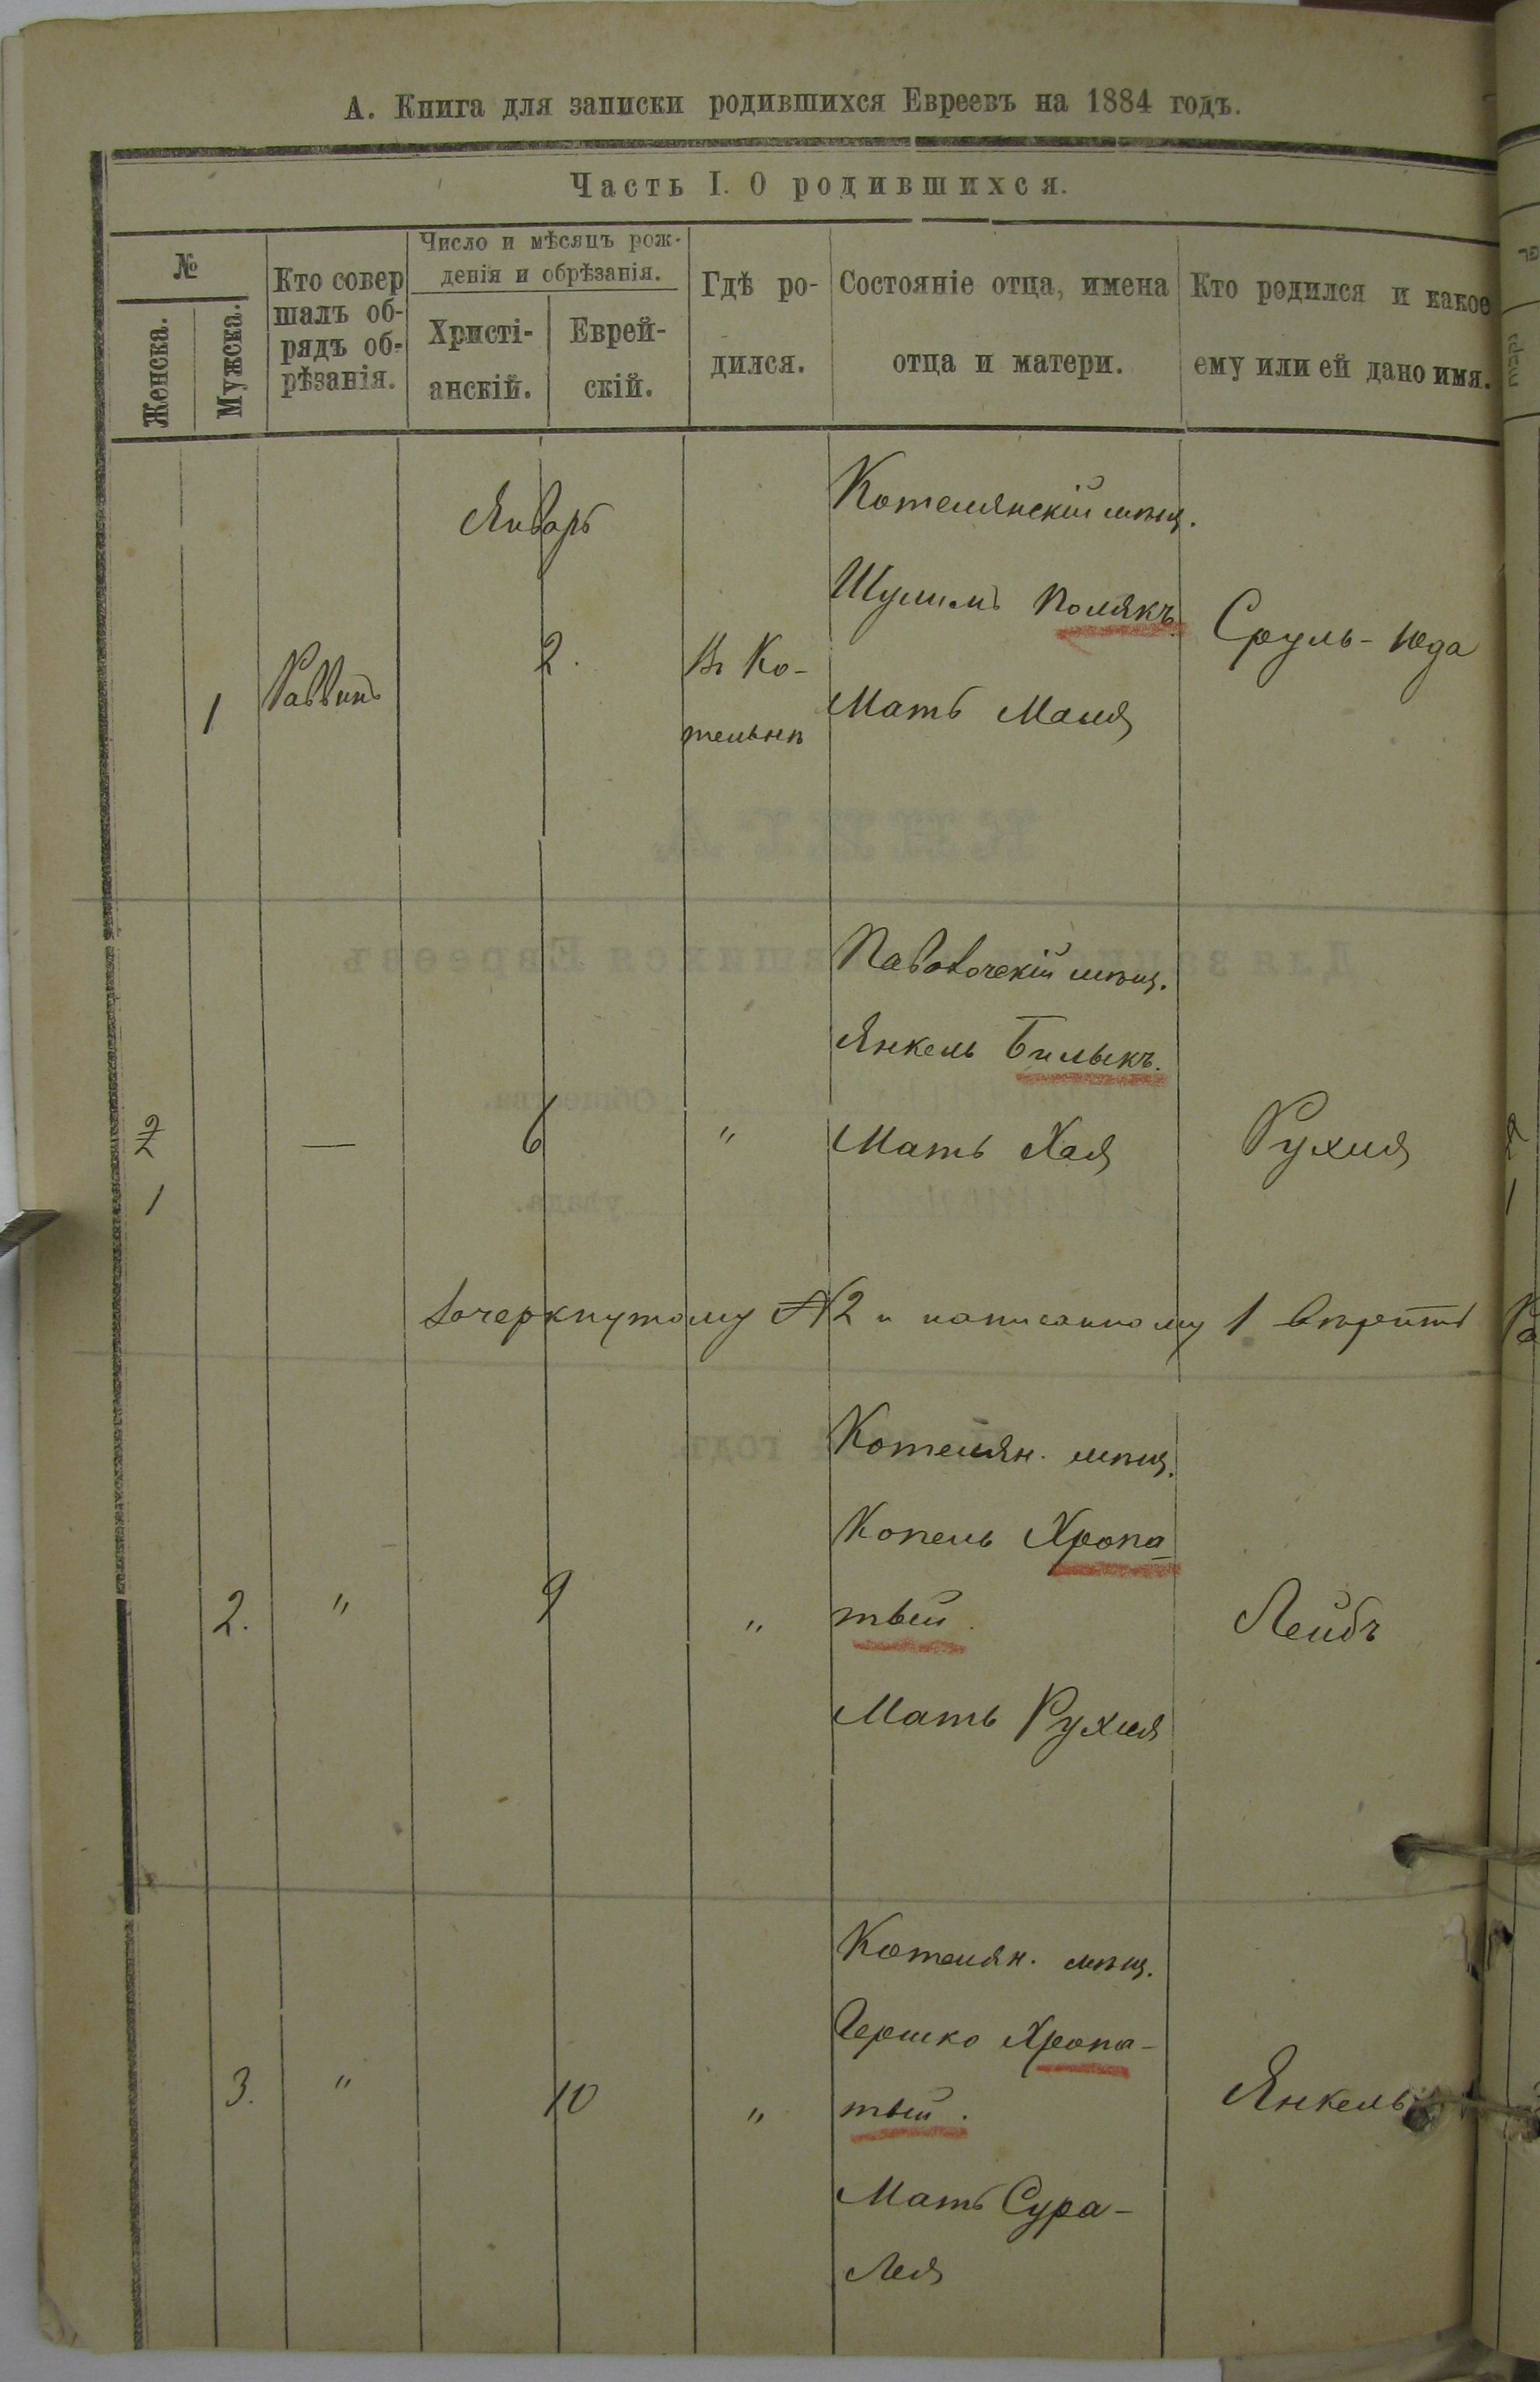 А. Книга для записки родившихся Евреевъ на 1884 годъ.
Часть I. О родившихся.
№
Женска.
Мужска.
Кто совер
шалъ об-
рядъ об-
рѣзанія.
Число и мѣсяцъ рож-
денія и обрѣзанія.
Христі-
анскій.
Еврей-
скій.
Гдѣ ро-
дился.
Состояніе отца, имена
отца и матери.
Кто родился и какое
ему или ей дано имя.
Январь
1
Раввинъ
2.
Въ Ко-
тельнѣ
Котелянскій мѣщ.
Шулимъ Полякъ.
Мать Маля
Сруль-Юда
2
1
—
6
"
Паволочскій мѣщ.
Янкель Билыкъ.
Мать Хая
Рухля
зачеркнутому №2 и написанному 1 вѣрить
2.
"
9
"
Котелян. мѣщ.
Копель Хропа-
тый.
Мать Рухля
Лейбъ
3.
"
10
"
Котелян. мѣщ.
Гершко Хропа-
тый.
Мать Сура-
Лея
Янкель